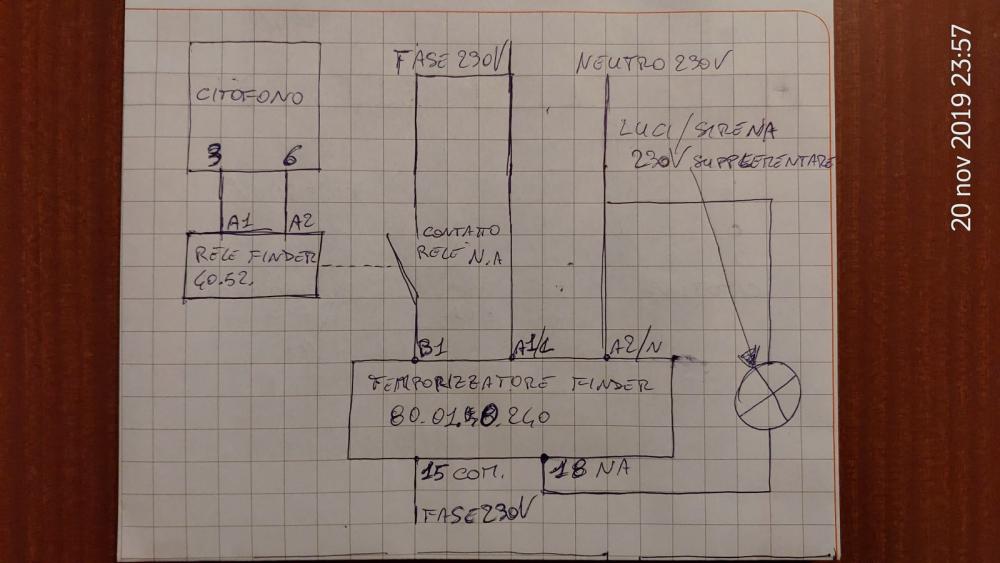 FASE 230V
NEUTRO 230V
CITOFONO
LUCI/SIRENA
230V SUPPLEMENTARE
3 6
A1 A2
CONTATTO
RELE N.A
RELE FINDER
40.52.
B1 A1/L A2/N
TEMPORIZZATORE FINDER
80.01. .240
15 COM. 18 NA
FASE 230V
20 nov 2019 23:57